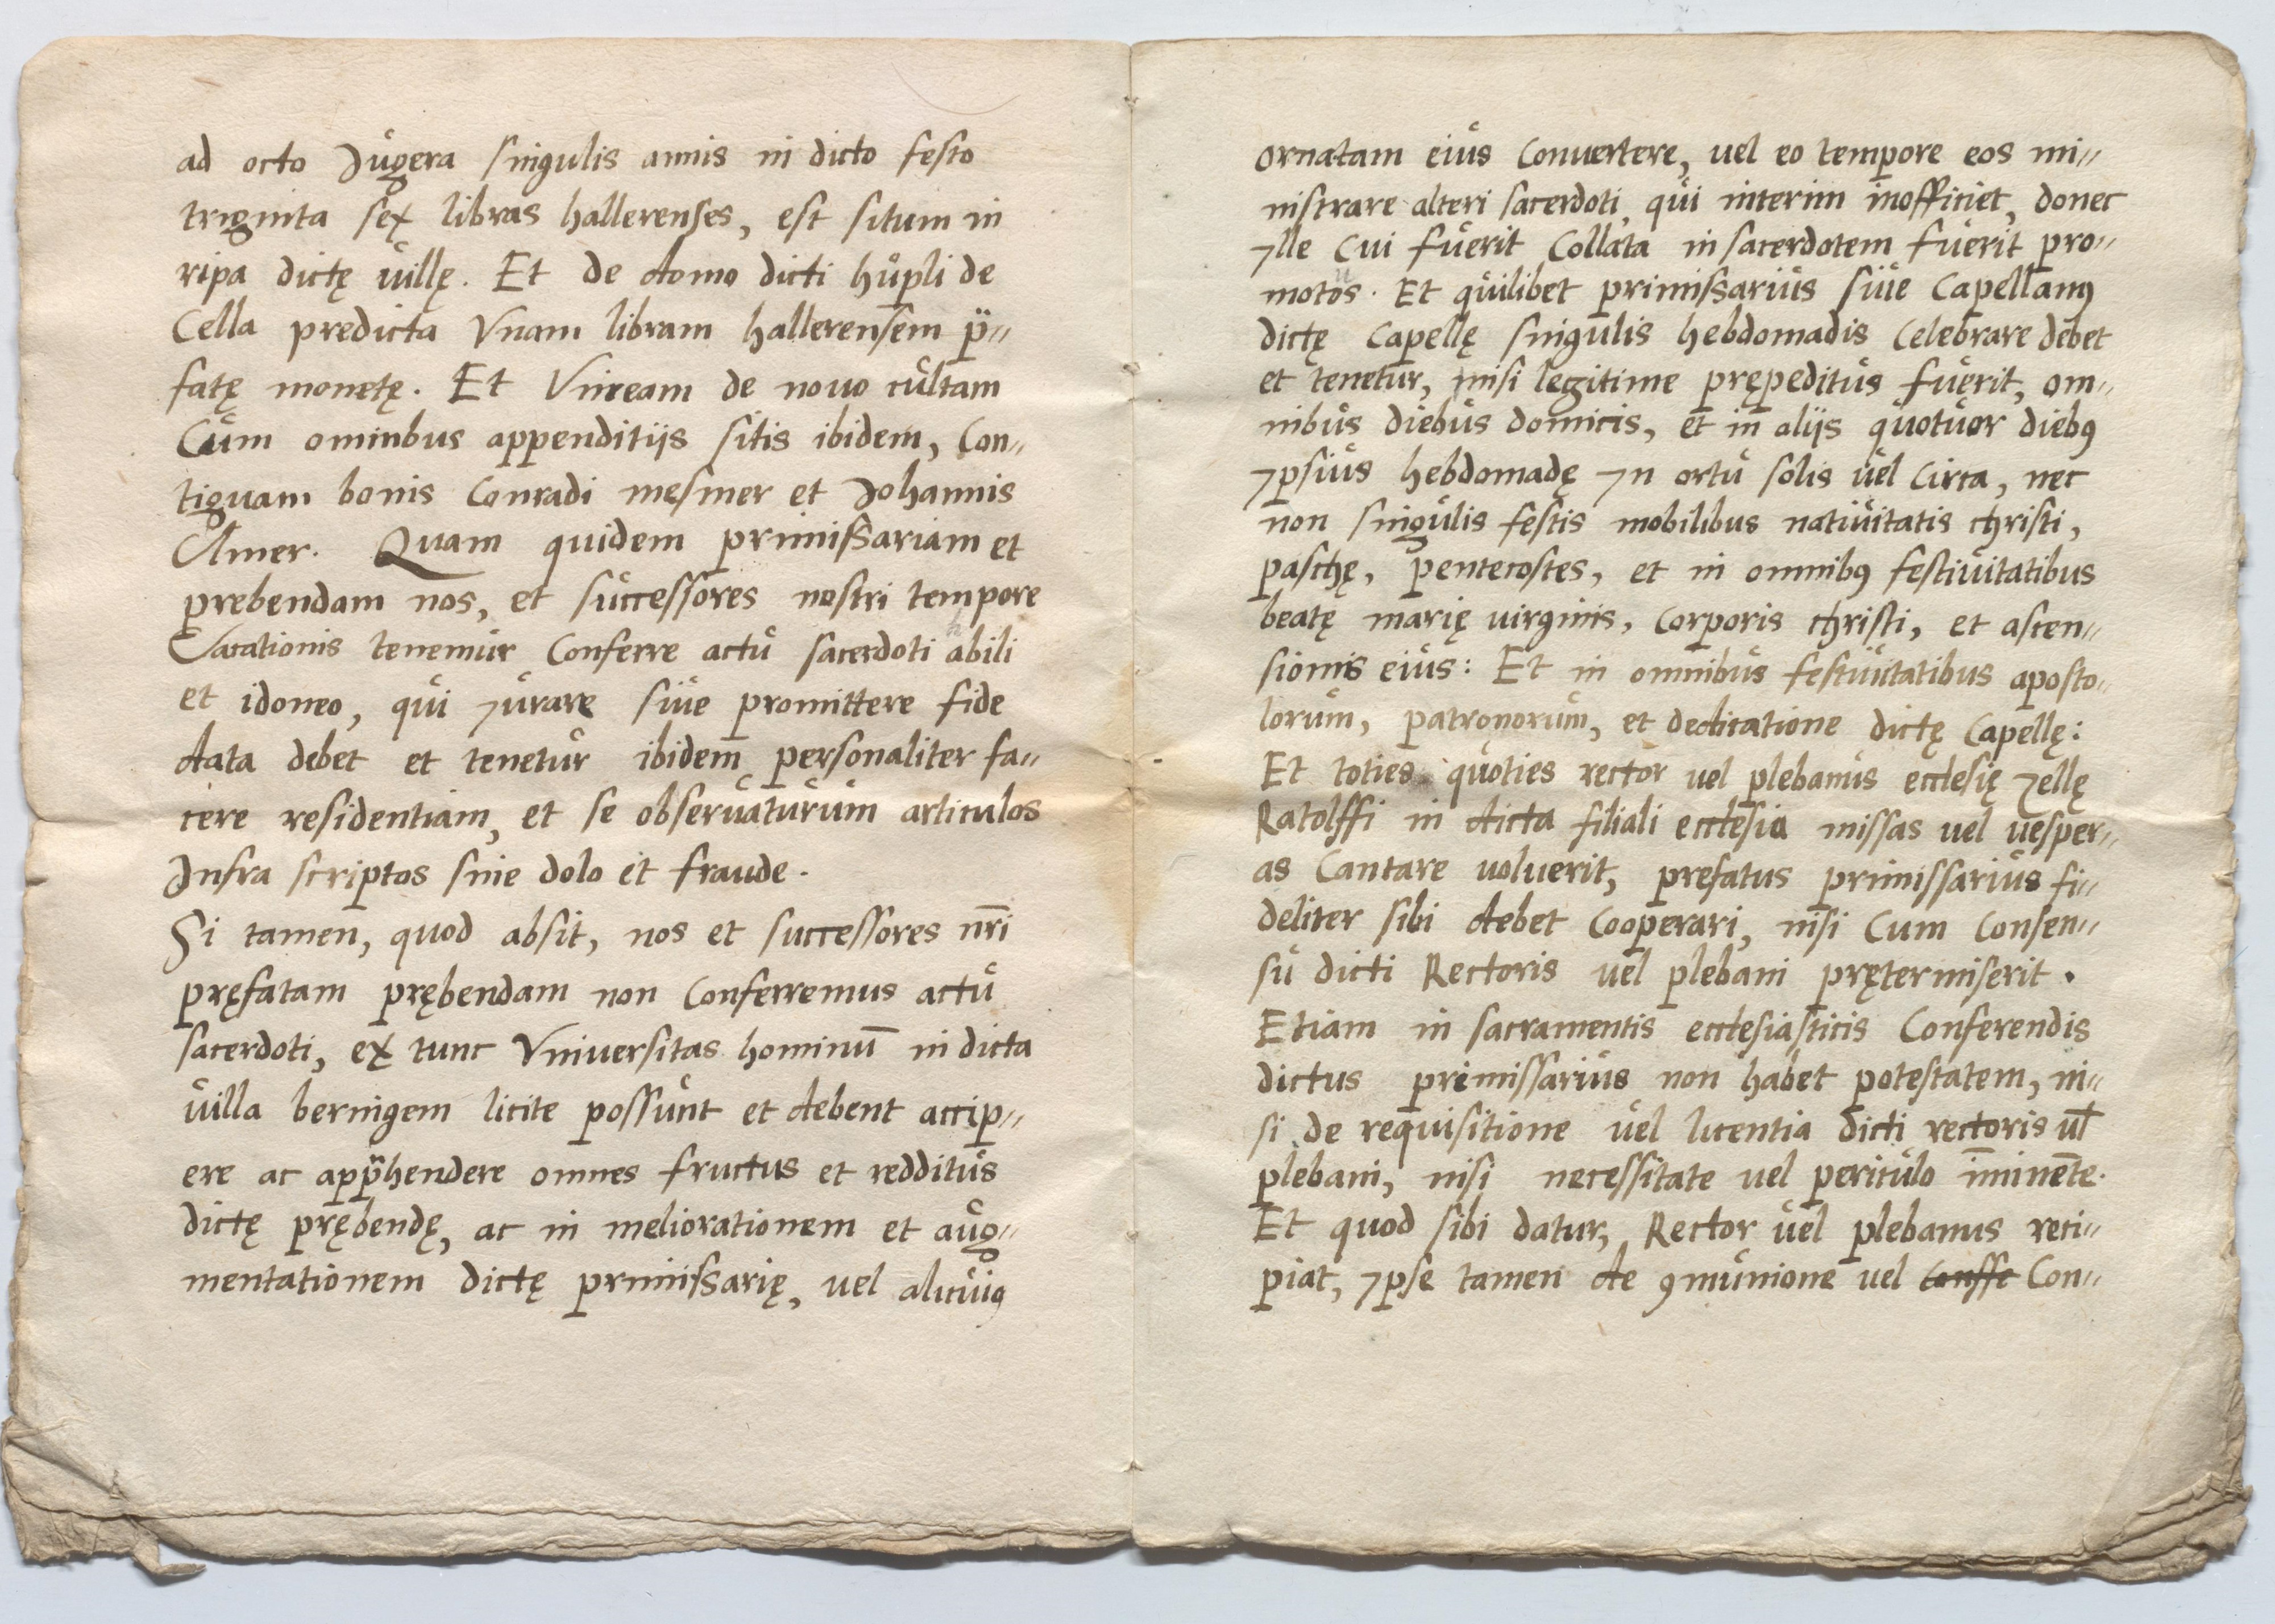 ad octo Jugera singulis annis in dicto festo
triginta sex libras hallerenses, est situm in
ripa dictę villę. Et de domo dicti hůpli de
Cella predicta Vnam libram hallerensem p̈"
fatę monetę. Et Vineam de nouo cultam
Cum ominbus appenditijs sitis ibidem, Con"
tiguam bonis Conradi mesmer et Johannis
Vlmer. Quam quidem primissariam et
prebendam nos, et successores nostri tempore
Vacationis tenemur Conferre actu sacerdoti habili
et idoneo, qui Iurare siue promittere fide
data debet et tenetur ibidem personaliter fa"
cere residentiam, et se obseruaturum articulos
Infra scriptos sine dolo et fraude.
Si tamen, quod absit, nos et successores nr̄i
pręfatam prębendam non Conferremus actu
sacerdoti, ex tunc Vniuersitas hominū in dicta
uilla berningem licite possunt et debent accip"
ere ac app̈hendere omnes fructus et redditus
dictę prębendę, ac in meliorationem et aug"
mentationem dictę primissarię, vel alicuiꝯ
ornatam eius Conuertere, uel eo tempore eos mi"
nistrare alteri sacerdoti, qui interim inofficiet, donec
Ille Cui fuerit Collata in sacerdotem fuerit pro"
motus. Et quilibet primissarius siue Capellanꝯ
dictę Capellę singulis hebdomadis Celebrare debet
et tenetur, nisi legitime prępeditus fuerit, om"
nibus diebus domicis, et in alijs quotuor diebꝯ
Ipsius hebdomadę In ortu solis uel Circa, nec
non singulis festis mobilibus natiuitatis christi,
paschę, pentecostes, et in omnibꝯ festiuitatibus
beatę marię uirginis, Corporis christi, et ascen"
sionis eius: Et in omnibus festiuitatibus aposto"
lorum, patronorum, et dedicatione dictę Capellę:
Et toties quoties rector uel plebanus ecclesię Zellę
Ratolffi in dicta filiali ecclesia missas uel uesper"
as Cantare uoluerit, prefatus primissarius fi"
deliter sibi debet Cooperari, nisi Cum Consen"
su dicti Rectoris uel plebani prętermiserit.
Etiam in sacramentis ecclesiasticis Conferendis
dictus primissarius non habet potestatem, ni"
si de requisitione uel licentia dicti rectoris ul̄
plebani, nisi necessitate uel periculo īminēte.
Et quod sibi datur, Rector uel plebanus reci"
piat, Ipse tamen de ꝯmunione uel Conffe Con"